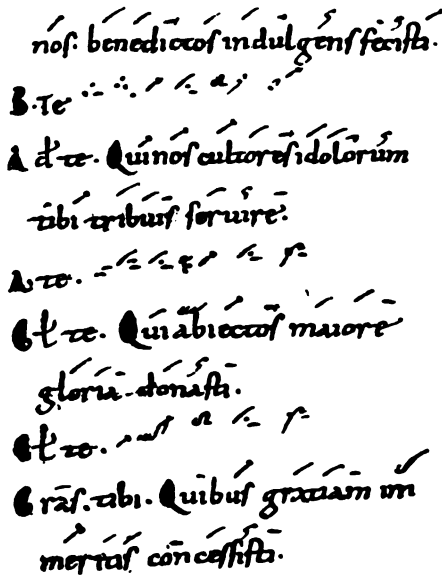 nos. benedictos indulgens fecisti.
B. Te
Ad te. Qui nos cultores idolorum
tibi tribuis seruire.
A. te.
Gł te. Qui abiectos maiore
gloria donasti.
Gł te.
Grās. tibi. Quibus gratiam im
meritis concessisti.